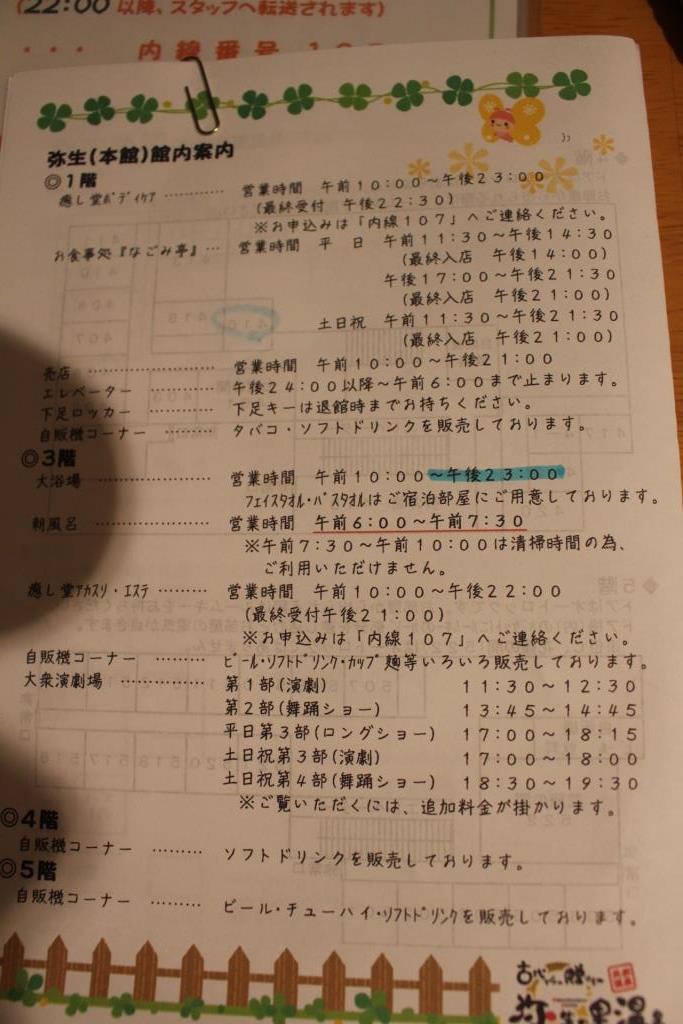 (22:00 以降、スタッフへ転送されます)
・・・ 内線番号
弥生(本館)館内案内
◎1階
癒し堂ボディケア ………… 営業時間 午前10:00～午後23:00
(最終受付 午後22:30)
※お申込みは「内線107」へご連絡ください。
お食事処『なごみ亭』… 営業時間 平 日 午前11:30～午後14:30
(最終入店 午後14:00)
午後17:00～午後21:30
(最終入店 午後21:00)
土日祝 午前11:30～午後21:30
(最終入店 午後21:00)
売店 ………………… 営業時間 午前10:00～午後21:00
エレベーター ………… 午後24:00以降～午前6:00まで止まります。
下足ロッカー ………… 下足キーは退館時までお持ちください。
自販機コーナー ……… タバコ・ソフトドリンクを販売しております。
◎3階
大浴場 ……………… 営業時間 午前10:00～午後23:00
フェイスタオル・バスタオルはご宿泊部屋にご用意しております。
朝風呂 ……………… 営業時間 午前6:00～午前7:30
※午前7:30～午前10:00は清掃時間の為、
ご利用いただけません。
癒し堂アカスリ・エステ ……… 営業時間 午前10:00～午後22:00
(最終受付午後21:00)
※お申込みは「内線107」へご連絡ください。
自販機コーナー ……… ビール・ソフトドリンク・カップ麺等いろいろ販売しております。
大衆演劇場 ………… 第1部(演劇) 11:30～12:30
第2部(舞踊ショー) 13:45～14:45
平日第3部(ロングショー) 17:00～18:15
土日祝第3部(演劇) 17:00～18:00
土日祝第4部(舞踊ショー) 18:30～19:30
※ご覧いただくには、追加料金が掛かります。
◎4階
自販機コーナー ……… ソフトドリンクを販売しております。
◎5階
自販機コーナー ……… ビール・チューハイ・ソフトドリンクを販売しております。
古代からの贈りもの
弥生の里温泉